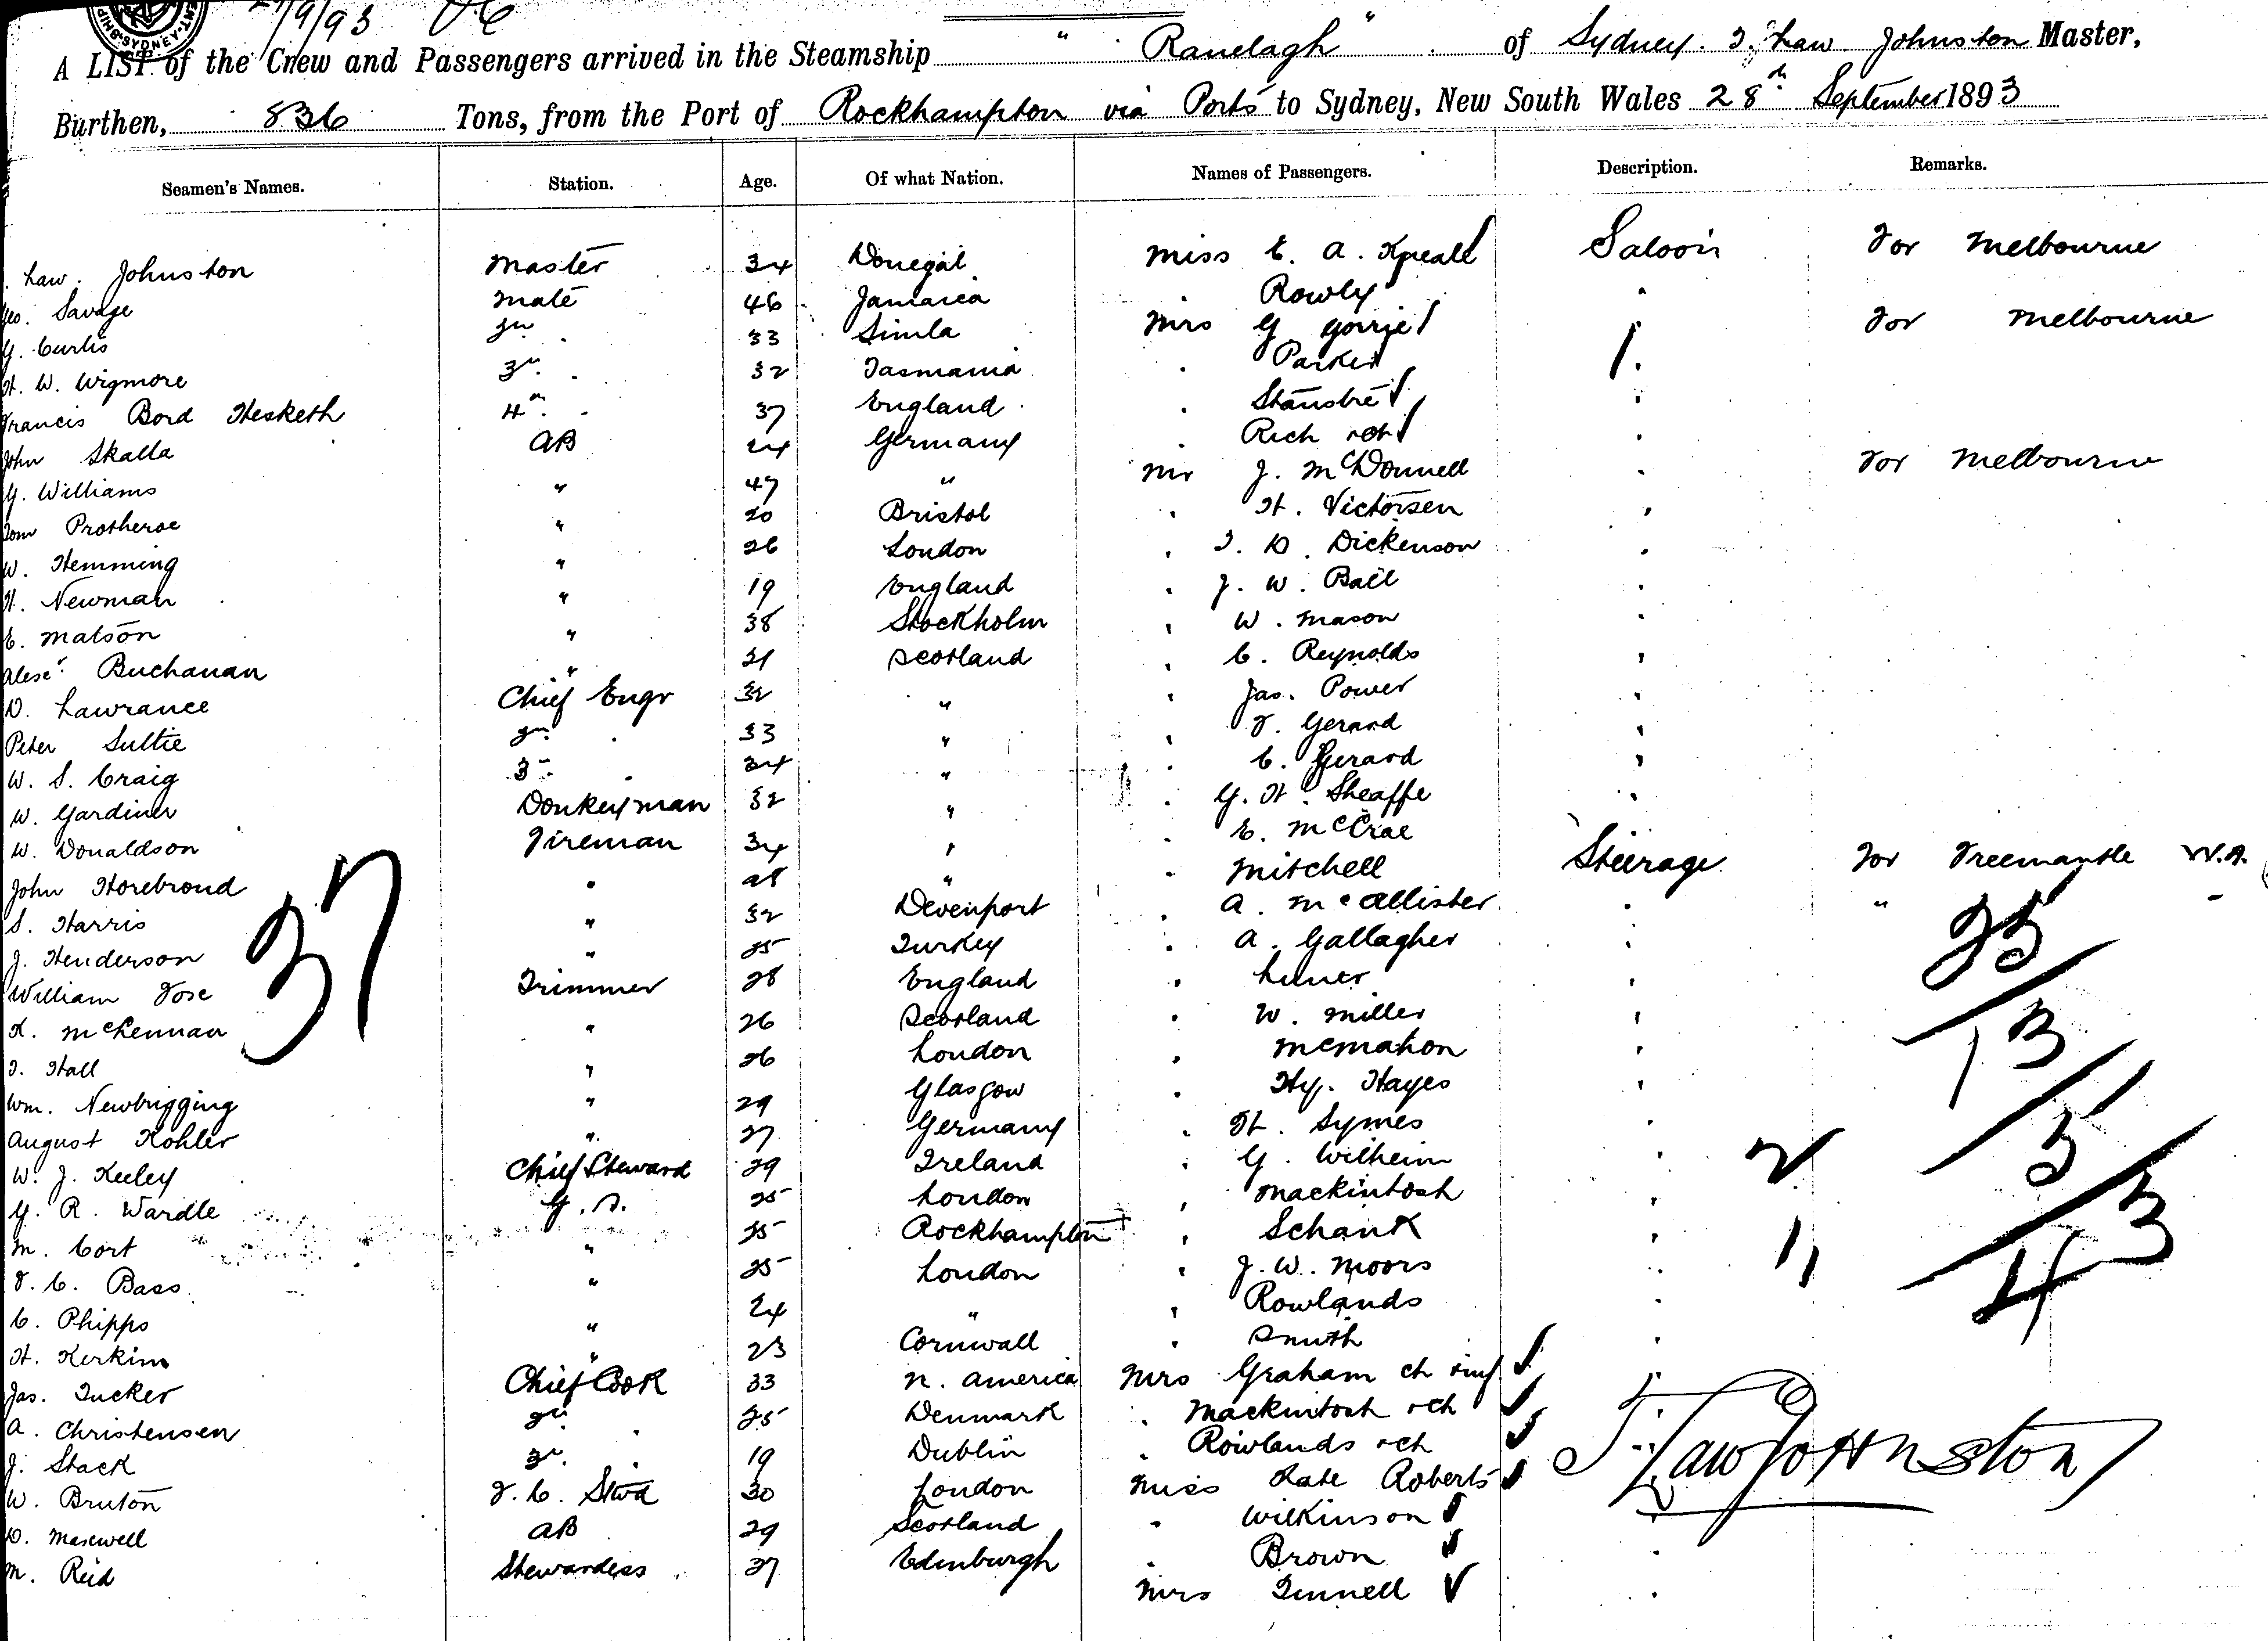 27/9/93
SYDNEY
A LIST of the Crew and Passengers arrived in the Steamship "Ranelagh" of Sydney. T. Law Johnston Master,
Burthen, 836 Tons, from the Port of Rockhampton via Ports to Sydney, New South Wales 28th September 1893
Seamen's Names. Station. Age. Of what Nation. Names of Passengers. Description. Remarks.
. Law. Johnston Master 34 Donegal Miss E. A. Kneall Saloon For Melbourne
Geo. Savage Mate 46 Jamaica . Rowly .
G. Curtis 2nd . 33 Simla Mrs G Gorrie . For Melbourne
H. W. Wigmore 3rd . 32 Tasmania . Parker .
Francis Bord Hesketh 4th . 37 England .
John Skalla AB 24 Germany . Rich .
G. Williams " 47 " Mr J. McDonnell . For Melbourne
Tom Protheroe " 20 Bristol . H. Victorsen .
W. Hemming " 26 London . T. D. Dickenson .
H. Newman " 19 England . J. W. Bail .
E. Matson " 38 Stockholm . W. Mason .
Alexr. Buchanan " 21 Scotland . C. Reynolds .
D. Lawrance Chief Engr 32 " . Jas. Power .
Peter Suttie 2nd . 33 " . F. Gerard .
W. S. Craig 3 . 34 " . C. Gerard .
W. Gardiner Donkeyman 32 " . G. H. Sheaffe .
W. Donaldson Fireman 34 " . E. McCrae
John Horebroud " 28 " . Mitchell Steerage For Freemantle W.A.
S. Harris " 32 Devenport . A. McAllister . " "
J. Henderson " 25 Turkey . A. Gallagher .
William Fose Trimmer 28 England .
K. McLennan " 26 Scotland . W. Miller .
T. Hall " 26 London . McMahon .
Wm. Newbigging " 29 Glasgow . Hy. Hayes .
August Kohler " 27 Germany . H. Symes .
W. J. Keeley Chief Steward 29 Ireland . G. Wilheim .
G. R. Wardle G. S. 25 London . Mackintosh .
M. Cort " 25 Rockhampton . Schank .
F. C. Bass " 25 London . J. W. Moors .
C. Phipps " 24 " . Rowlands .
H. Kerkin " 23 Cornwall . Smith .
Jas. Tucker Chief Cook 33 N. America Mrs Graham ch & inf
A. Christensen 2nd . 25 Denmark . Mackintosh & ch
J. Stack 3rd . 19 Dublin . Rowlands & ch
W. Bruton F. C. Stwd 30 London Miss Kate Roberts
D. Maxwell AB 29 Scotland . Wilkinson .
M. Reid Stewardess 37 Edinburgh . Brown .
Mrs Tinnell .
37
25
13
2
11
43
T. Law Johnston